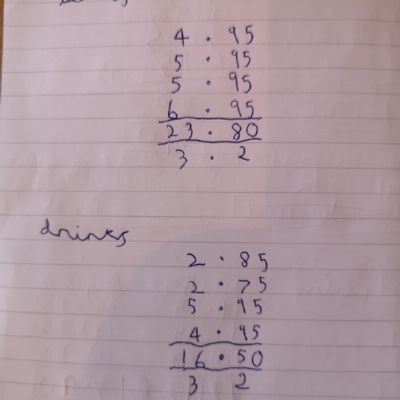 4 . 95
5 . 95
5 . 95
6 . 95
23 . 80
3 . 2
drinks
2 . 85
2 . 75
5 . 95
4 . 95
16 . 50
3 2